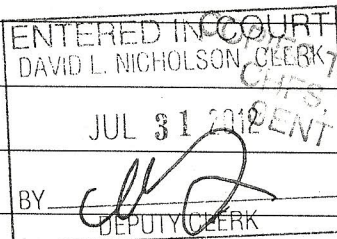 ENTERED IN COURT
DAVID L. NICHOLSON, CLERK
JUL 31 2012
BY
DEPUTY CLERK
CHFS,
SENT